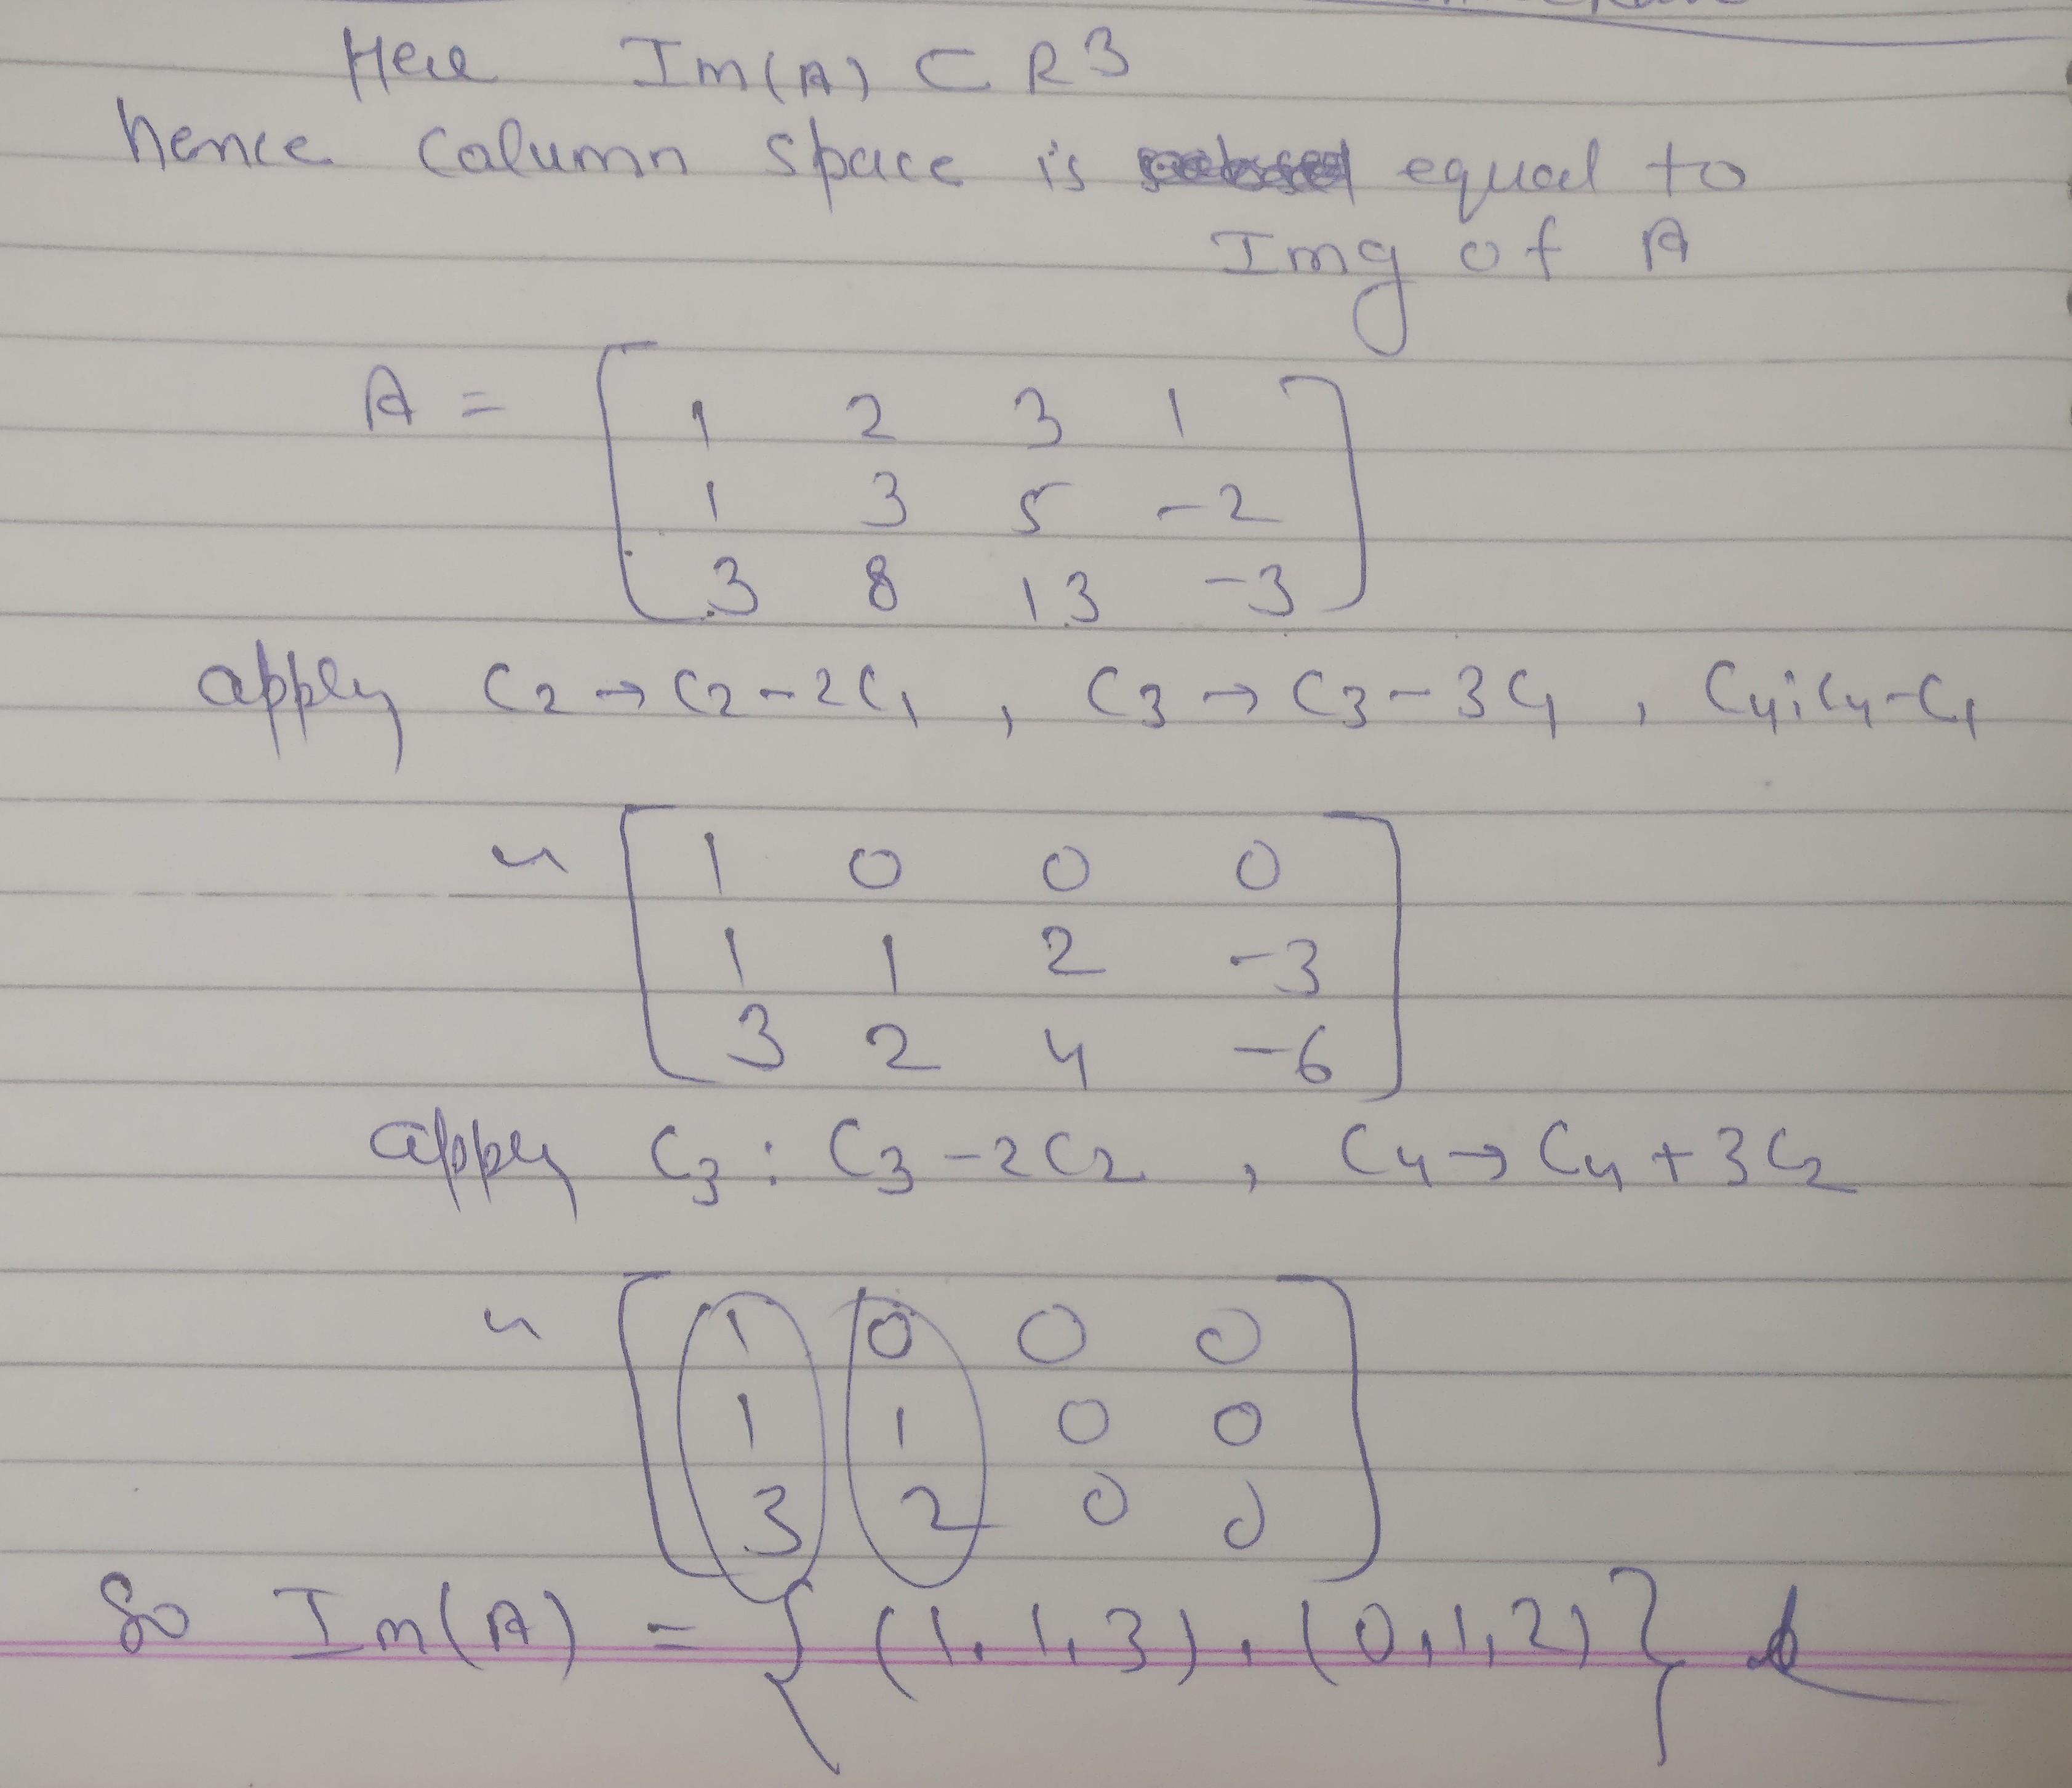 Here Im(A) ⊂ R3
hence Column space is equal to
Img of A
A = [ 1 2 3 1
1 3 5 -2
3 8 13 -3 ]
apply C2 → C2 - 2C1 , C3 → C3 - 3C1 , C4 : C4 - C1
~ [ 1 0 0 0
1 1 2 -3
3 2 4 -6 ]
apply C3 : C3 - 2C2 , C4 → C4 + 3C2
~ [ 1 0 0 0
1 1 0 0
3 2 0 0 ]
So Im(A) = { (1, 1, 3), (0, 1, 2) }